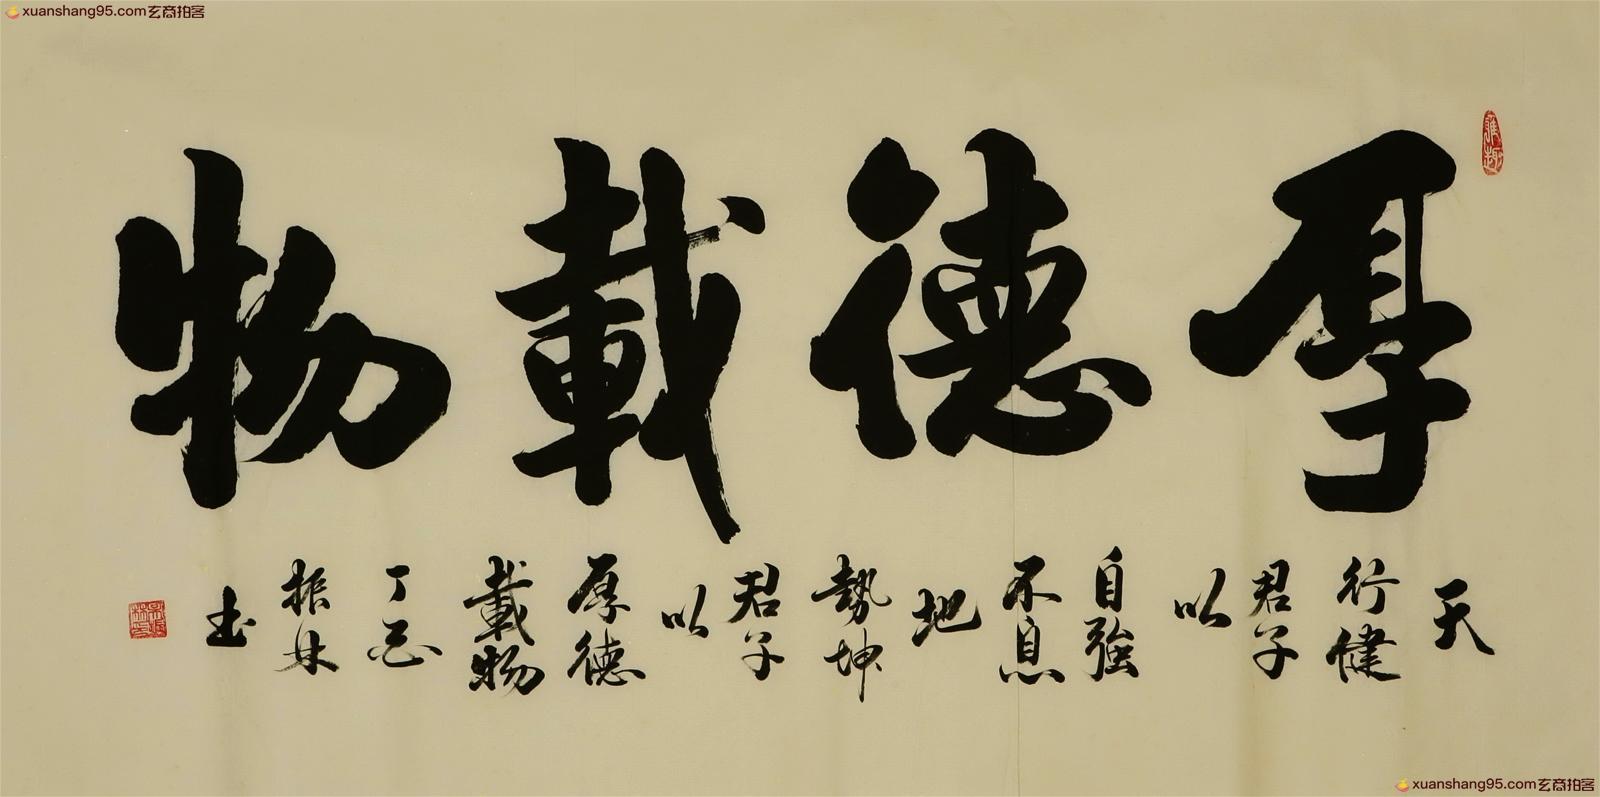 xuanshang95.com玄商拍客
雅趣
厚德載物
天
行健
君子
以
自強
不息
地
勢坤
君子
以
厚德
載物
丁亥
振林
書
xuanshang95.com玄商拍客